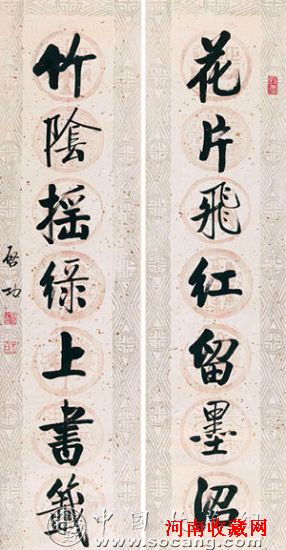 花片飛紅留墨沼
竹陰摇綠上書籤
啓功
中国收藏网
www.socang.com
河南收藏网